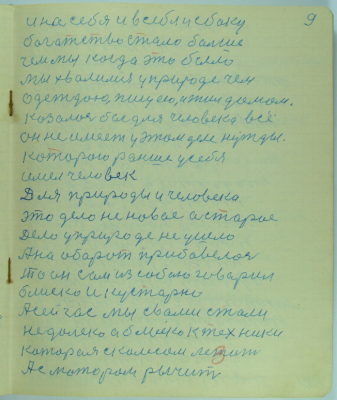 9
и на себя и всебя и сбоку
богатство стало больше
чем мы когда это было
мы хвалимся уприроде чем
одеждою, пищею, итим домом.
Казалос бы для человека всё
он не имеет у этом деле нужды.
которою раньше усебя
имел человек
Для природы и человека
это дело не новое а старое
Дело уприроде не ушло
А на оборот прибавелос
То он сам из собою говорил
блиско и кустарно
А сичас мы свами стали
недалеко а близко к технике
которая с колесом летит
А с мотором рычит